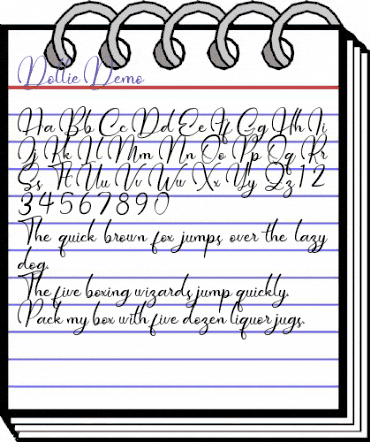 Dollie Demo
Aa Bb Cc Dd Ee Ff Gg Hh Ii
Jj Kk Ll Mm Nn Oo Pp Qq Rr
Ss Tt Uu Vv Ww Xx Yy Zz 1 2
3 4 5 6 7 8 9 0
The quick brown fox jumps over the lazy
dog.
The five boxing wizards jump quickly.
Pack my box with five dozen liquor jugs.